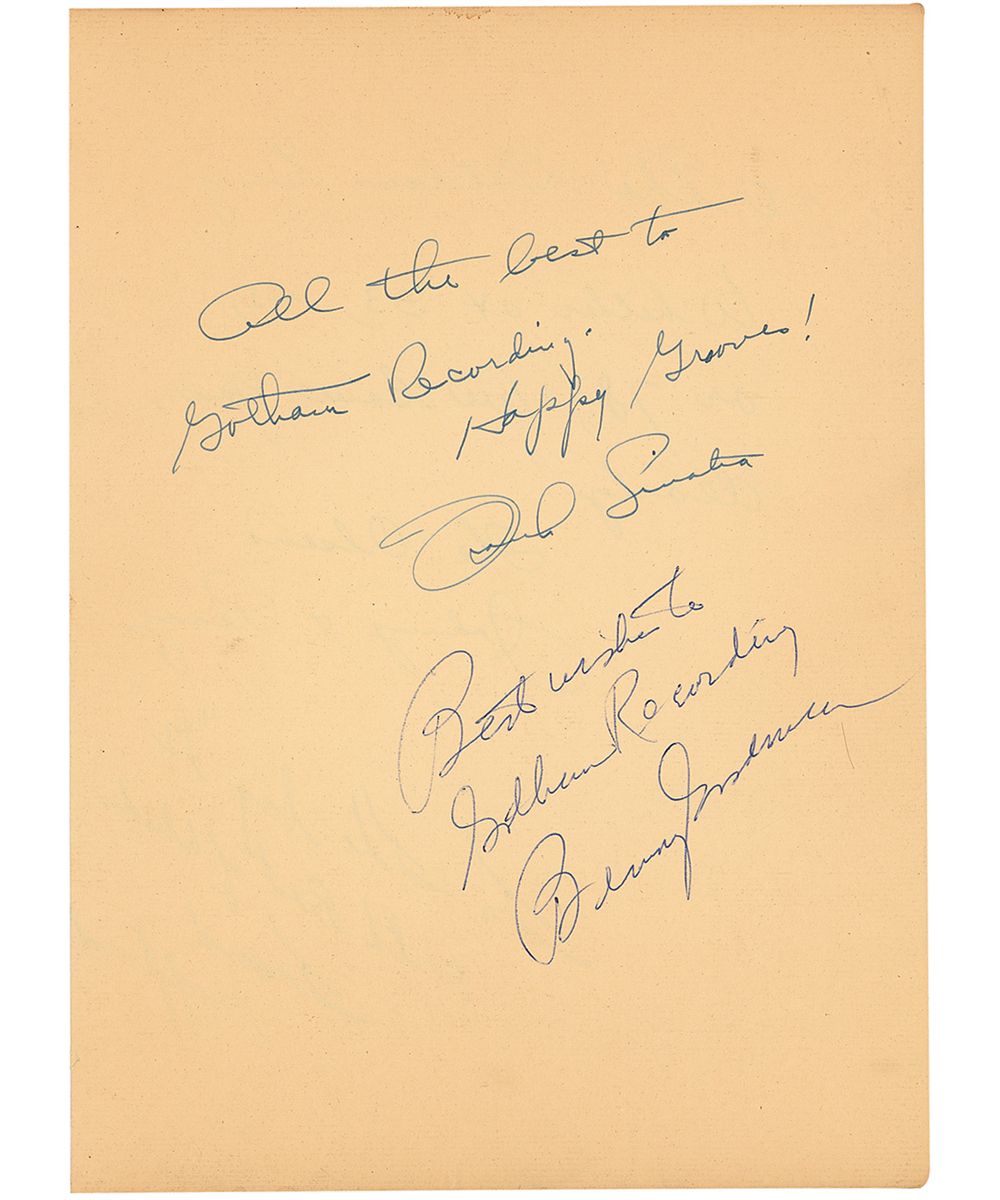 All the best to
Gotham Recording.
Happy Grooves!
Frank Sinatra
Best wishes to
Gotham Recording
Benny Goodman